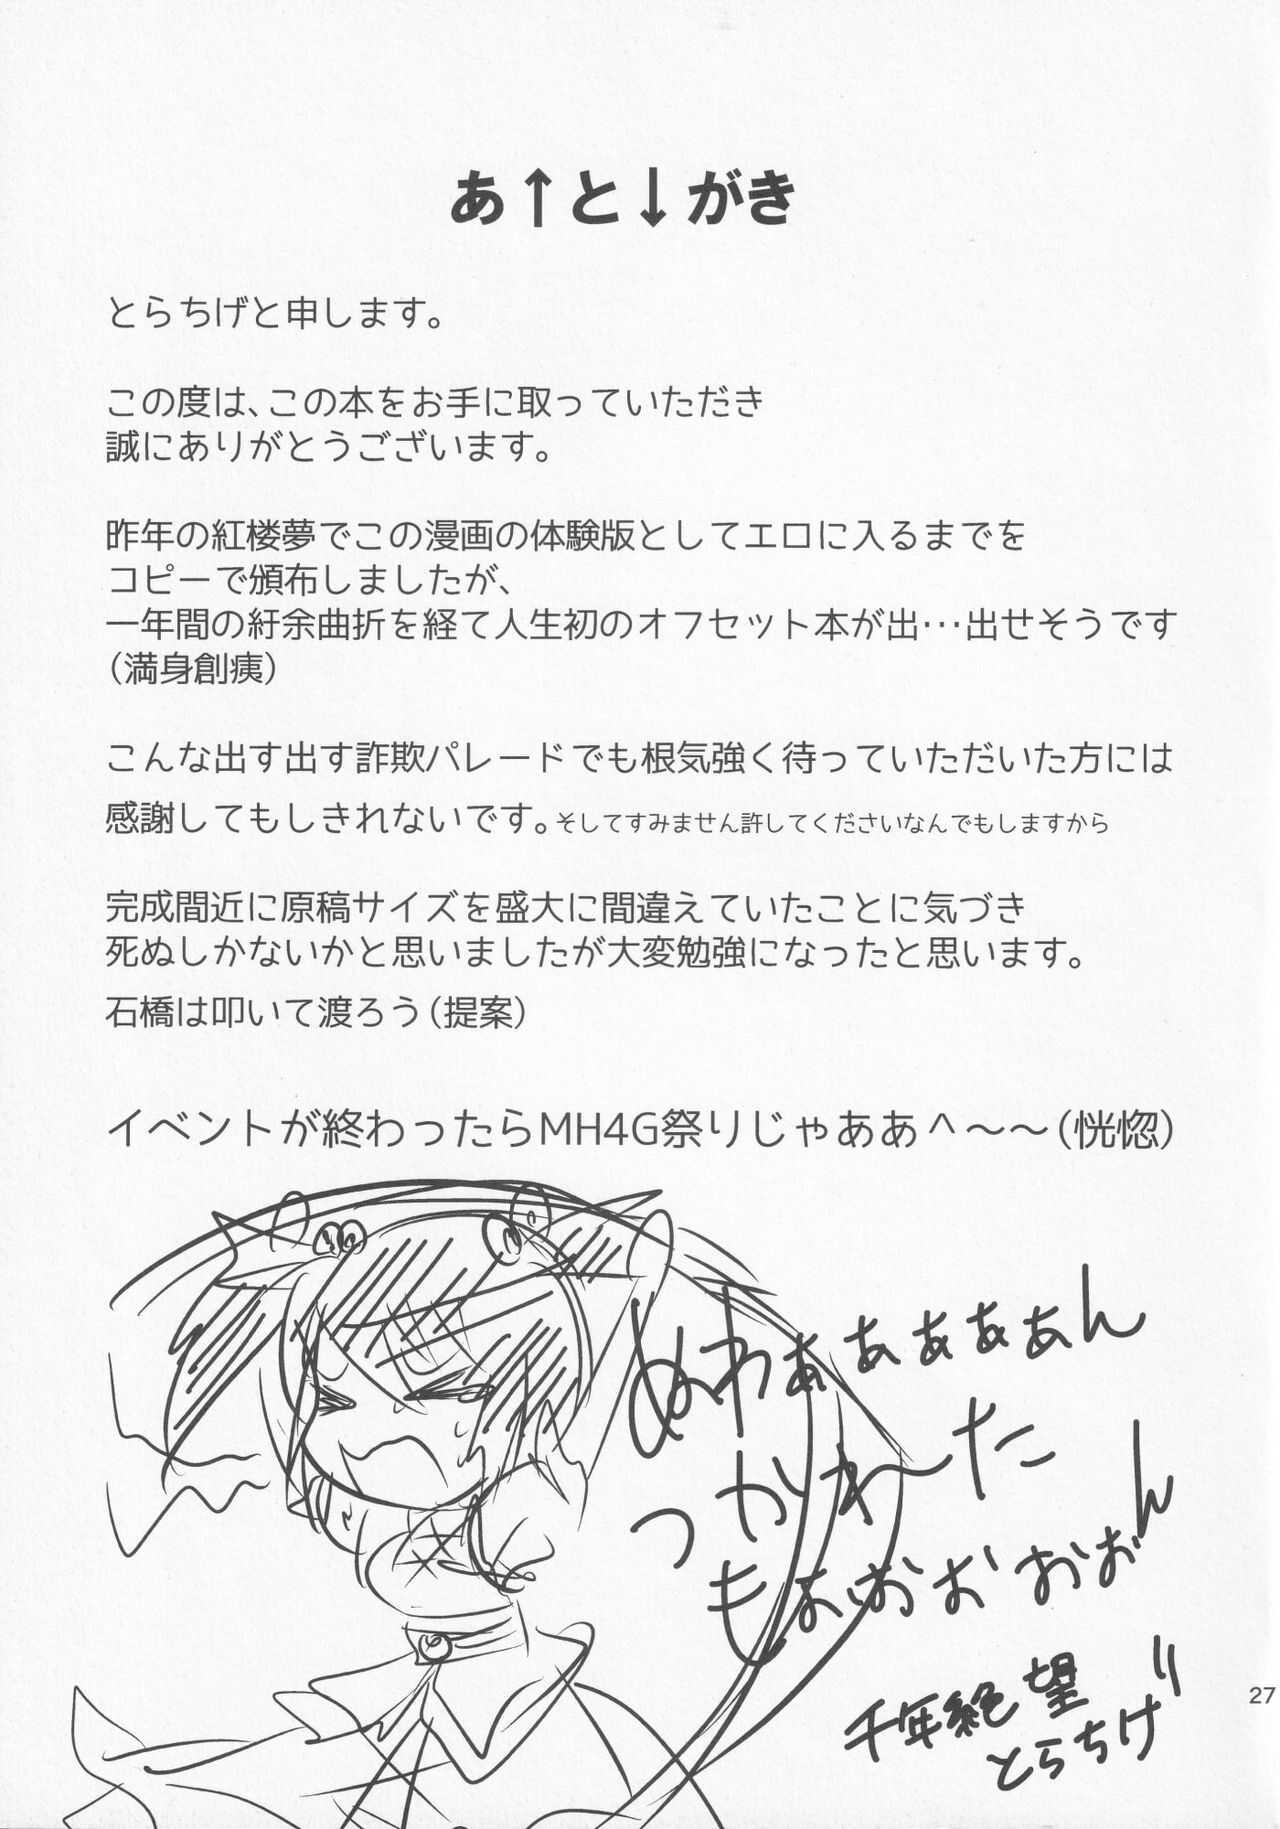 あ↑と↓がき
とらちげと申します。
この度は、この本をお手に取っていただき
誠にありがとうございます。
昨年の紅楼夢でこの漫画の体験版としてエロに入るまでを
コピーで頒布しましたが、
一年間の紆余曲折を経て人生初のオフセット本が出…出せそうです
(満身創痍)
こんな出す出す詐欺パレードでも根気強く待っていただいた方には
感謝してもしきれないです。そしてすみません許してくださいなんでもしますから
完成間近に原稿サイズを盛大に間違えていたことに気づき
死ぬしかないかと思いましたが大変勉強になったと思います。
石橋は叩いて渡ろう(提案)
イベントが終わったらMH4G祭りじゃああ^～～(恍惚)
ぬわぁぁぁぁぁん
つかれーた
もぉおおおおん
千年絶望
とらちげ
27